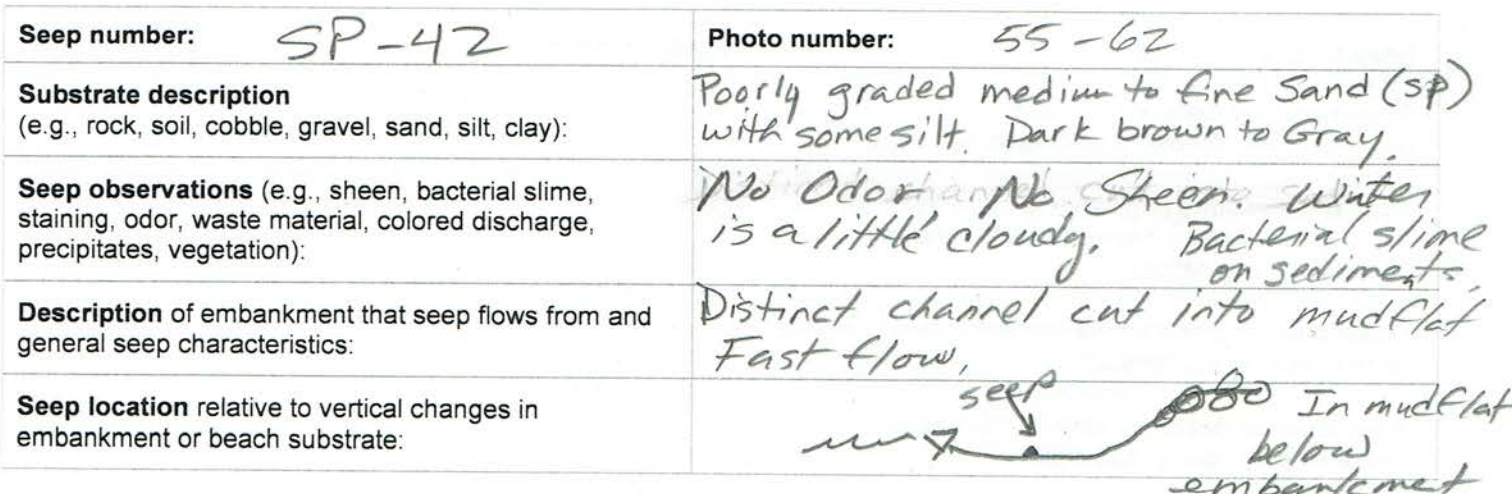 Seep number: SP-42 Photo number: 55-62
Substrate description
(e.g., rock, soil, cobble, gravel, sand, silt, clay):
Poorly graded medium to fine Sand (SP)
with some silt. Dark brown to Gray.
Seep observations (e.g., sheen, bacterial slime,
staining, odor, waste material, colored discharge,
precipitates, vegetation):
No Odor No Sheen. Water
is a little cloudy. Bacterial slime
on sediments.
Description of embankment that seep flows from and
general seep characteristics:
Distinct channel cut into mudflat
Fast flow,
Seep location relative to vertical changes in
embankment or beach substrate:
seep
In mudflat
below
embankmet